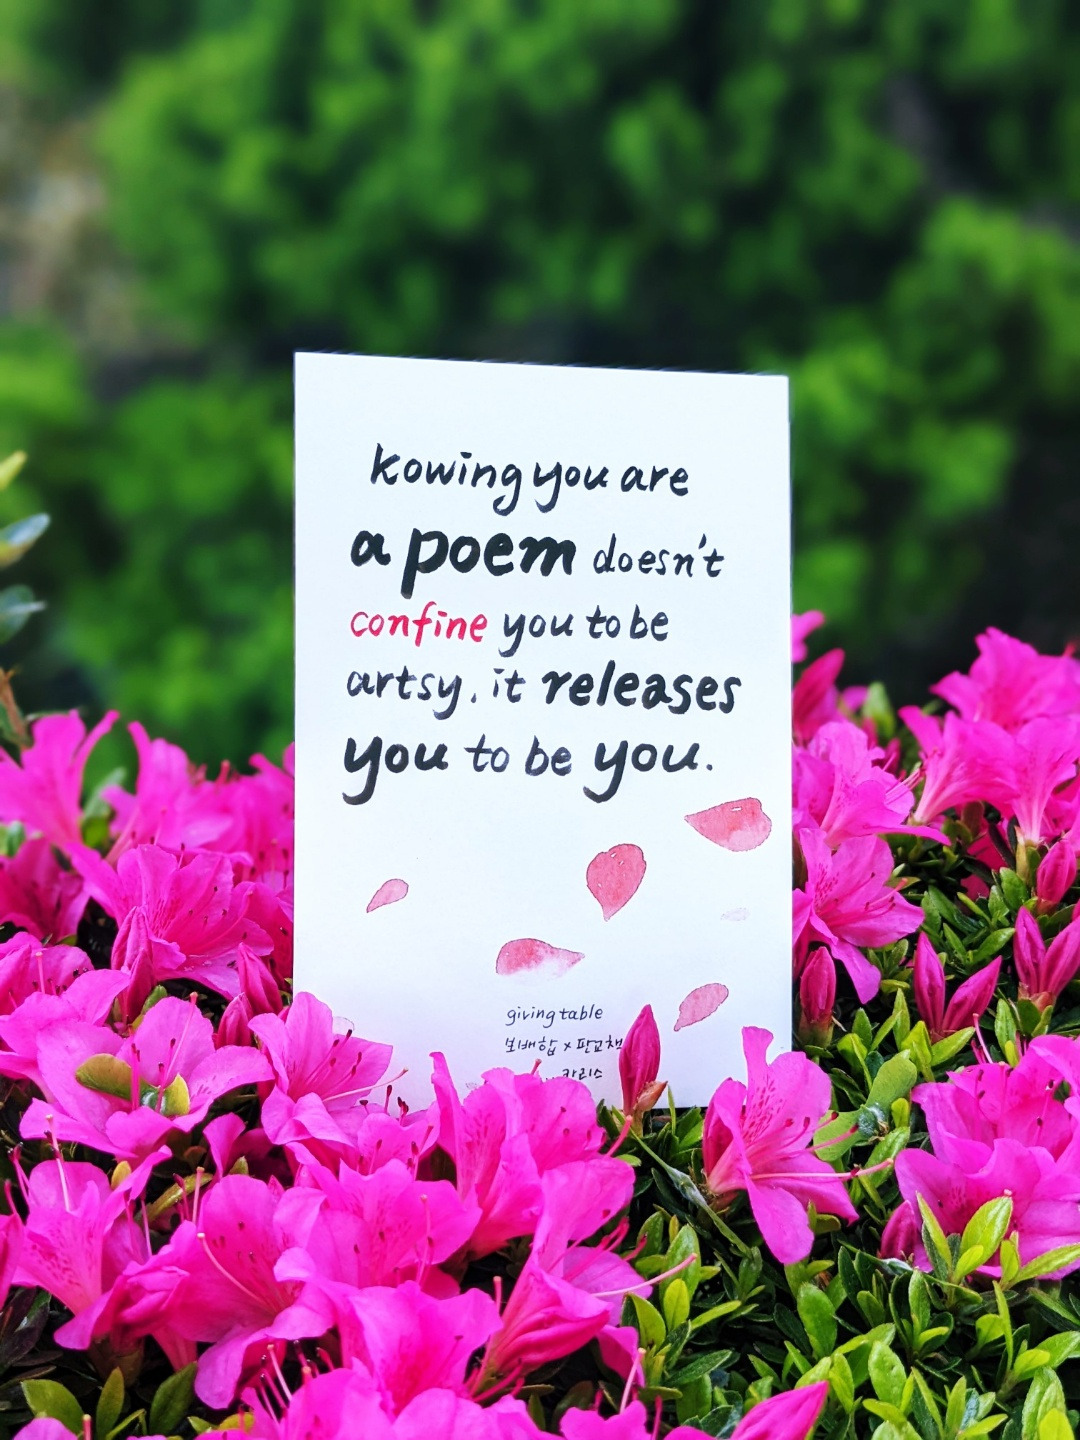 kowing you are
a poem doesn't
confine you to be
artsy. it releases
you to be you.
giving table
보배합 x 판교책
카리스